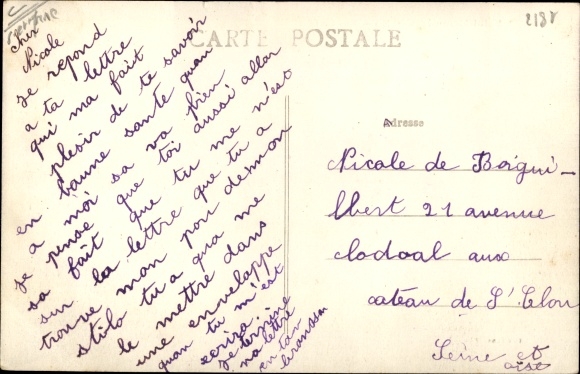 CARTE POSTALE
2187
Adresse
cher
Nicole
je repond
a ta lettre
qui ma fait
plesir de te savoir
en baune santé quan
a moi sa va bien
je pense que toi aussi allor
sa fait que tu me n'est
sur la lettre que tu a
trouve man pour desmon
stilo tu a qua me
le mettre dans
une envelappe
quan tu m'est
ecrira.
je termine
na lettre
en tan
Nicole de Boigui_
lbert 21 avenue
clodoal aux
cateau de S'Clou
Seine et
oise